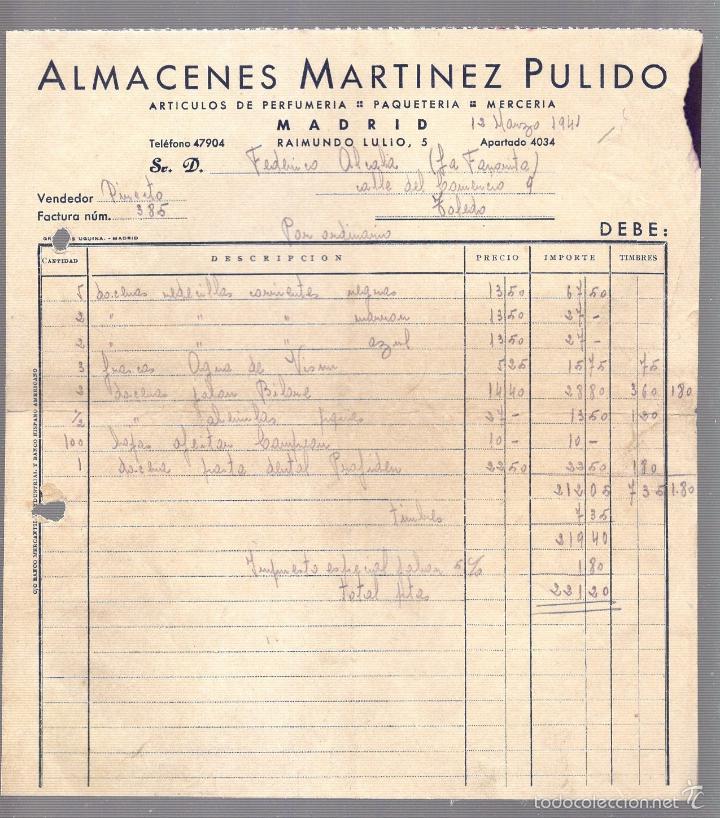 ALMACENES MARTINEZ PULIDO
ARTICULOS DE PERFUMERIA PAQUETERIA MERCERIA
MADRID 12 Marzo 1941
Teléfono 47904 RAIMUNDO LULIO, 5 Apartado 4034
Sr. D. Federico Alcalá (La Favorita)
calle del Comercio 9
Vendedor
Toledo
Factura núm. 385
Por ordinario
DEBE:
UGUINA. - MADRID
CANTIDAD DESCRIPCION PRECIO IMPORTE TIMBRES
5 docenas redecillas corrientes negras 13 50 67 50
2 " " " marron 13 50 27 -
2 " " " azul 13 50 27 -
3 frascos Agua de 5 25 15 75 75
2 docenas jabon 14 40 28 80 3 60 1 80
1/2 " 27 - 13 50 1 20
100 hojas afeitar Campeon 10 - 10 -
1 docena pasta dental Profiden 22 50 22 50 1 80
212 05 7 35 1.80
timbres 7 35
219 40
Impuesto especial jabon 5% 1 80
total ptas 221 20
C/C BANCO MERCANTIL INDUSTRIAL Y BANCO HISPANO AMERICANO
todocoleccion.net